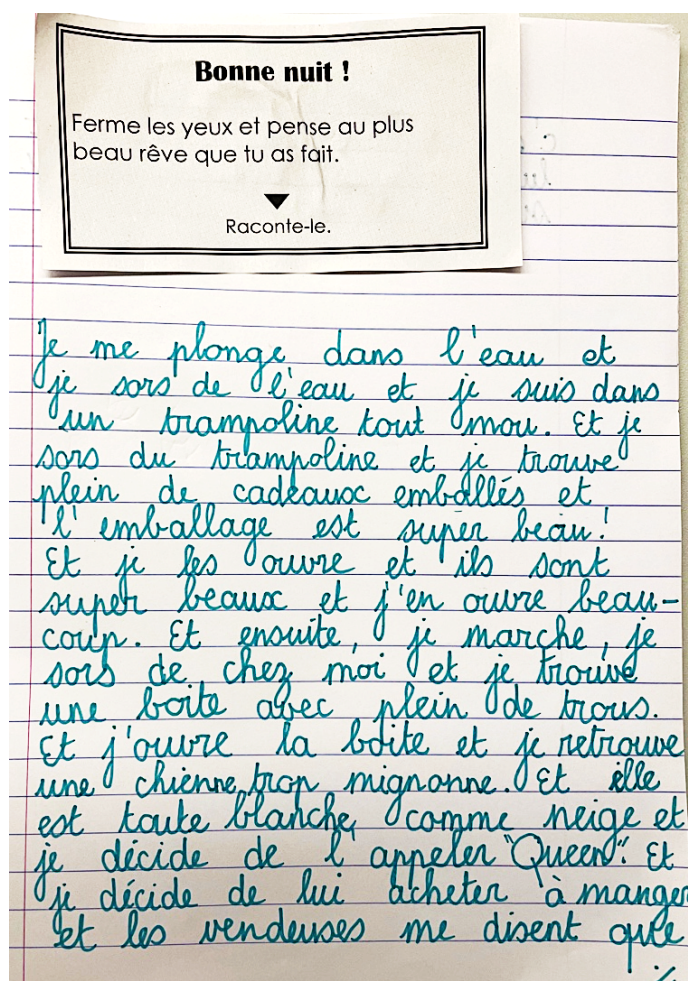 Bonne nuit !
Ferme les yeux et pense au plus
beau rêve que tu as fait.
Raconte-le.
Je me plonge dans l'eau et
je sors de l'eau et je suis dans
un trampoline tout mou. Et je
sors du trampoline et je trouve
plein de cadeaux emballés et
l'emballage est super beau!
Et je les ouvre et ils sont
super beaux et j'en ouvre beau-
coup. Et ensuite, je marche, je
sors de chez moi et je trouve
une boîte avec plein de trous.
Et j'ouvre la boîte et je retrouve
une chienne trop mignonne. Et elle
est toute blanche comme neige et
je décide de l'appeler "Queen". Et
je décide de lui acheter à manger
et les vendeuses me disent que